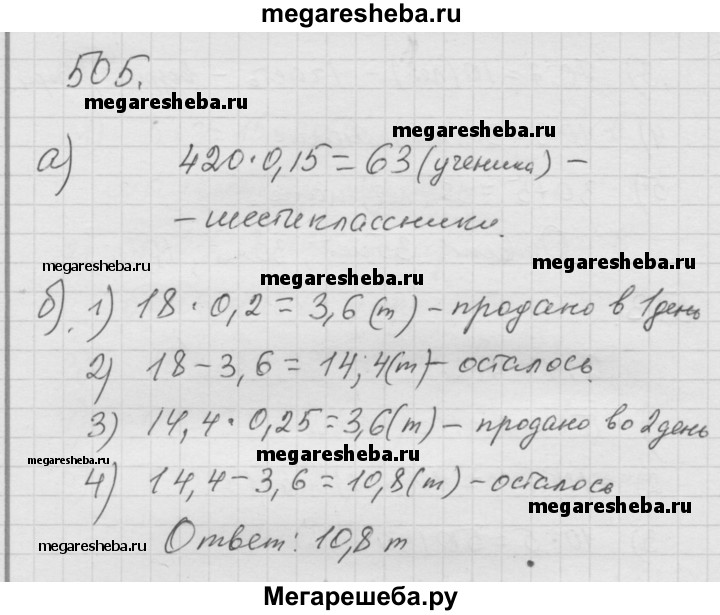 megaresheba.ru
505.
megaresheba.ru
megaresheba.ru
а) 420·0,15=63(ученика) –
– шестиклассники.
megaresheba.ru
megaresheba.ru
megaresheba.ru
б). 1) 18 · 0,2 = 3,6(т) – продано в 1 день
2) 18 – 3,6 = 14,4(т) – осталось
3) 14,4 · 0,25 = 3,6(т) – продано во 2 день
megaresheba.ru
megaresheba.ru
4) 14,4 – 3,6 = 10,8(т) – осталось
megaresheba.ru
megaresheba.ru
Ответ: 10,8 т
Мегарешеба.ру